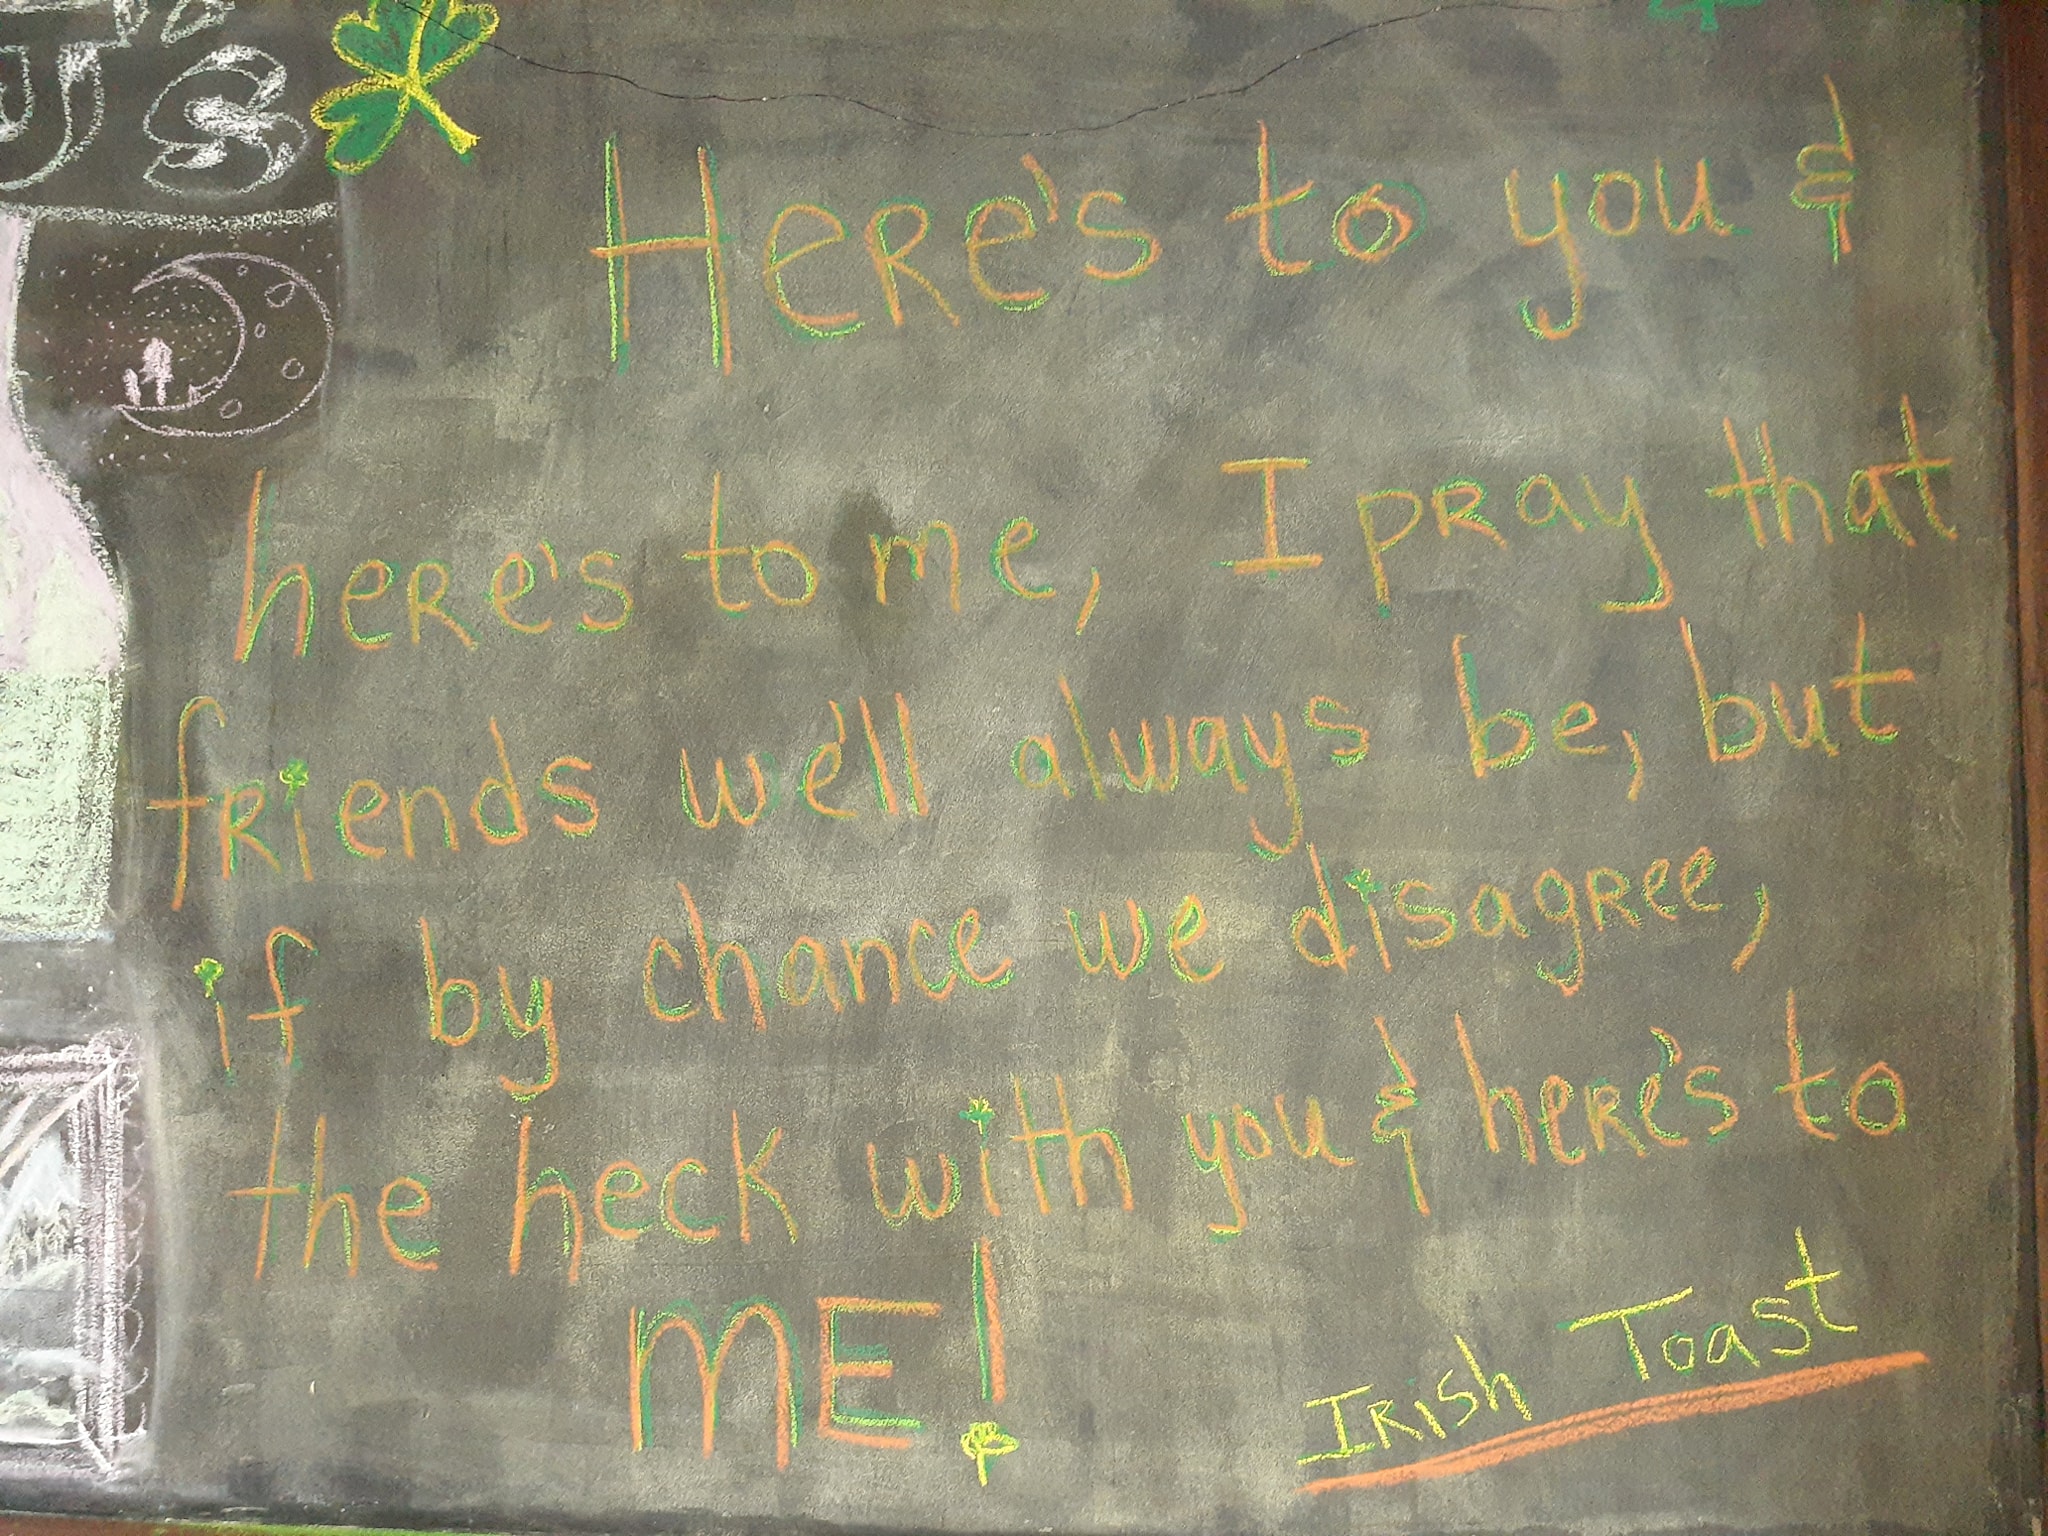 J's
Here's to you &
here's to me, I pray that
friends we'll always be, but
if by chance we disagree,
the heck with you & here's to
ME!
Irish Toast